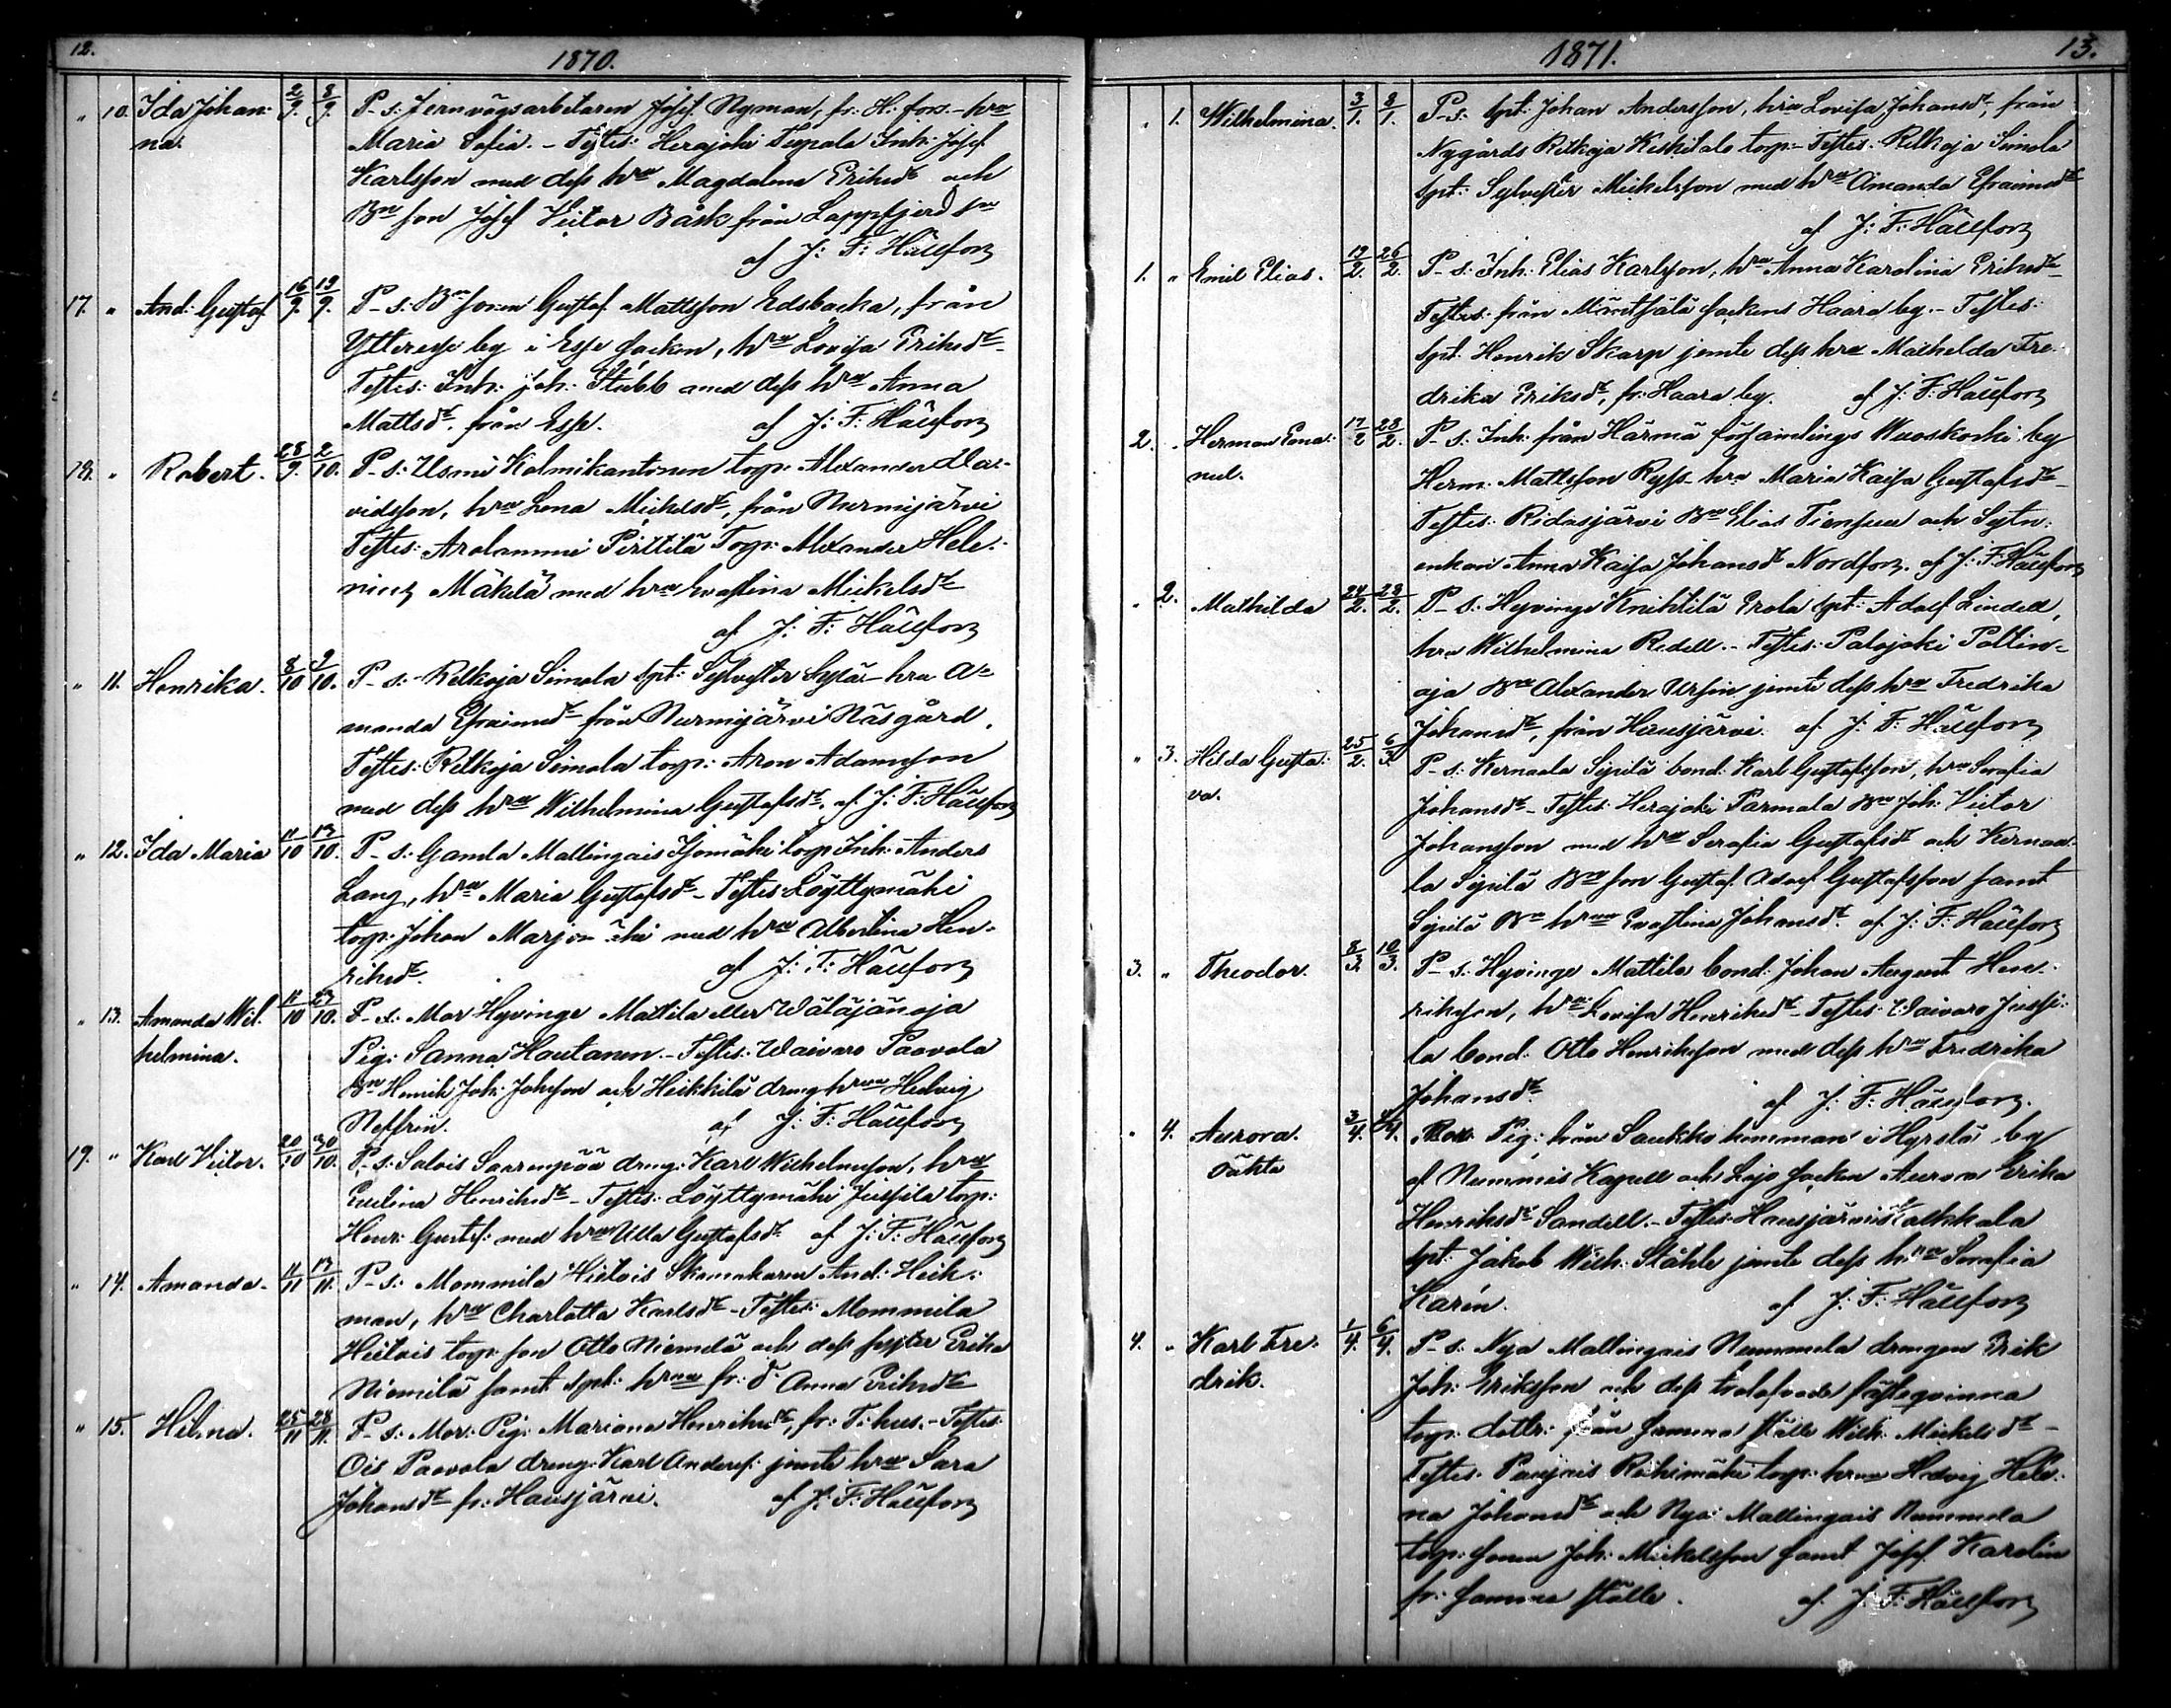 12.
1870.
„ 10. Ida Johan- 2/9. 8/9. P-s: Jernvägsarbetaren Josef Nyman, fr: H:fors.- hru
na. Maria Sofia. - Testes: Herajoki Teppala Inh: Josef
Karlsson med dess hru Magdalena Eriksdr och
Bn son Josef Victor Bäsk från Lappfjerd sn
af J: F: Hällfors
17. „ And: Gustaf 16/9. 19/9. P-s: Bn sonen Gustaf Mattsson Edsbacka, från
Ytteresse by i Esse socken, hru Lovisa Eriksdr -
Testes: Inh: Joh: Stubb med dess hru Anna
Mattsdr. från Esse. af J: F: Hällfors
18. „ Robert. 28/9. 2/10. P-s: Usmi Kolmikantonen torp: Alexander
vidsson, hru Lena Mickelsdr, från Nurmijärvi
Testes: Arolammi Pirttilä Torp: Alexander Hele-
nius Mäkelä med hru Evastina Mickelsdr
af J: F: Hällfors
„ 11. Henrika. 8/10 9/10. P-s: Relkoja Simola Spt: Sylvester Syrä - hru A-
manda Efraimsdr från Nurmijärvi Näsgård.
Testes: Relkoja Simola torp: Aron Adamsson
med dess hru Wilhelmina Gustafsdr. af J: F: Hällfors
„ 12. Ida Maria 11/10 13/10. P-s: Gamla Mallingais Isomäki torp Inh: Anders
Lang, hru Maria Gustafsdr - Testes: Löyttymäki
torp: Johan Marjomäki med hru Albertina Hen-
riksdr. af J: F: Hällfors
„ 13. Amanda Wil- 11/10 23/10. P-s: Mor Hyvinge Mattila eller Wäläjänoja
helmina. Pig: Sanna Hautanen. - Testes: Waivaro Paavola
Bn Henrik Joh: Johsson och Heikkilä dreng hrun Hedvig
Neffrin. af J: F: Hällfors
19. „ Karl Victor. 20/10 30/10. P-s: Salois Saarenpää dreng: Karl Wilhelmsson, hru
Evelina Henriksdr - Testes: Löyttymäki Jussila torp:
Henr: Gustf: med hru Ulla Gustafsdr af J: F: Hällfors
„ 14. Amanda. 11/11 13/11. P-s: Mommila Hietois Skomakaren And: Heik-
man, hru Charlotta Karlsdr - Testes: Mommila
Hietois torp: son Otto Niemelä och dess syster Erika
Niemilä samt Spt: hrun fr: do Anna Eriksdr
„ 15. Hilma. 25/11 28/11. P-s: Mor: Pig: Mariana Henriksdr, fr: T:hus. - Testes
Ois Paavola dreng: Karl Anderss: jemte hru Sara
Johansdr fr: Hausjärvi. af J: F: Hällfors
1871.
13.
„ 1. Wilhelmina. 3/1. 8/1. P-s: Spt: Johan Andersson, hru Lovisa Johansdr, från
Nygårds Ritkoja Keskitalo torp - Testes: Relkoja Simola
Spt: Sylvester Mickelsson med hru Amanda Efraimsdr
af J: F: Hällfors
1. „ Emil Elias. 12/2. 26/2. P-s: Inh: Elias Karlsson, hru Anna Karolina Eriksdr
Testes: från Mäntsälä sockens Haara by. - Testes:
Spt: Henrik Skarp jemte dess hru Mathilda Fre-
drika Eriksdr, fr: Haara by. af J: F: Hällfors
2. „ Herman Ema- 17/2 28/2. P-s: Inh: från Härmä församlings Wuoskoski by
nuel. Herm: Mattsson Ryss - hru Maria Kaisa Gustafsdr -
Testes: Ridasjärvi Bn Elias Tiensuu och Sytn:
enkan Anna Kaisa Johansdr Nordfors. af J: F: Hällfors
„ 2. Mathilda 24/2. 28/2. P-s: Hyvinge Knihtilä Erola Spt: Adolf Lindell,
hru Wilhelmina Redell. - Testes: Palojoki Pollin-
oja Bn Alexander Ursin jemte dess hru Fredrika
Johansdr, från Hausjärvi. af J: F: Hällfors
„ 3. Hilda Gusta- 25/2. 6/3. P-s: Kernaala Sipilä bond: Karl Gustafsson, hru Serafia
va. Johansdr - Testes: Herajoki Parmala Bn Joh: Victor
Johansson med hru Serafia Gustafsdr och Kernaa-
la Sipilä Bn son Gustaf Adolf Gustafsson samt
Sipilä Bn hrun Evastina Johansdr. af J: F: Hällfors
3. „ Theodor. 8/3. 10/3. P-s: Hyvinge Mattila bond: Johan August Hen-
riksson, hru Lovisa Henriksdr - Testes: Waivaro Jussi-
la bond: Otto Henriksson med dess hru Fredrika
Johansdr. af J: F: Hällfors.
„ 4. Aurora. 3/4. 4/4. Pig: från Saukko hemman i Hyrslä by
oäkta af Nummis Kapell och Lojo Socken Aurora Erika
Henriksdr Sandell. - Testes Hausjärvis Talkkala
Spt: Jakob Wilh: Ståhle jemte dess hru Serafia
Karén. af J: F: Hällfors
4. „ Karl Fre- 1/4. 6/4. P-s: Nya Mallingais Nummela drengen Erik
drik. Joh: Eriksson och dess trolofvade fästeqvinna
torp: dottr: från samma ställe Wilh: Mickelsdr -
Testes. Paijais Riihimäki torp: hrun Hedvig Hele-
na Johansdr och Nya Mallingais Nummela
torp: sonen Joh: Mickelsson samt Josef Karolin
fr: samma ställe. af J: F: Hällfors